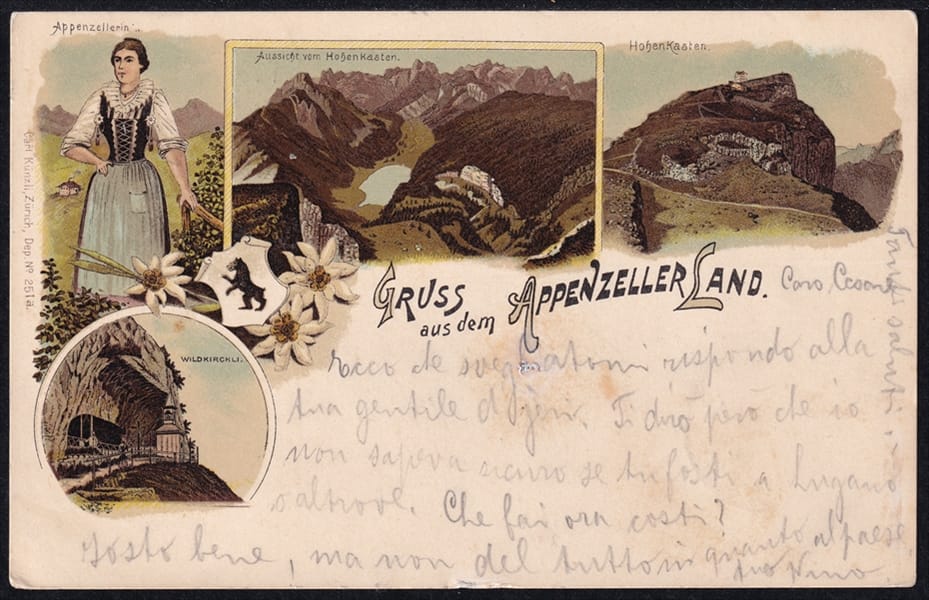 Appenzellerin
Aussicht vom Hohenkasten.
Hohenkasten.
Carl Künzli, Zürich, Dep. Nº 251a.
WILDKIRCHLI.
GRUSS
aus dem APPENZELLER LAND.
Caro Cesare
Ecco che rispondo alla
tua gentile d. Ti dirò però che io
non sapeva sicuro se tu fosti a Lugano
o altrove. Che fai ora costì?
sto bene, ma non del tutto in quanto al paese
tuo Nino
Tanti saluti